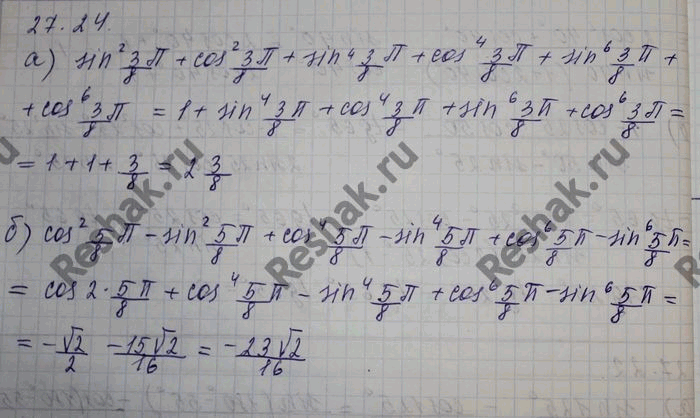 27.24.
а) sin² 3/8 π + cos² 3/8 π + sin⁴ 3/8 π + cos⁴ 3/8 π + sin⁶ 3/8 π +
+ cos⁶ 3/8 π = 1 + sin⁴ 3/8 π + cos⁴ 3/8 π + sin⁶ 3/8 π + cos⁶ 3/8 π =
= 1 + 1 + 3/8 = 2 3/8
б) cos² 5/8 π - sin² 5/8 π + cos⁴ 5/8 π - sin⁴ 5/8 π + cos⁶ 5/8 π - sin⁶ 5/8 π =
= cos 2 · 5π/8 + cos⁴ 5/8 π - sin⁴ 5/8 π + cos⁶ 5/8 π - sin⁶ 5/8 π =
= - √2/2 - 15√2/16 = - 23√2/16
Reshak.ru
Reshak.ru
Reshak.ru
Reshak.ru